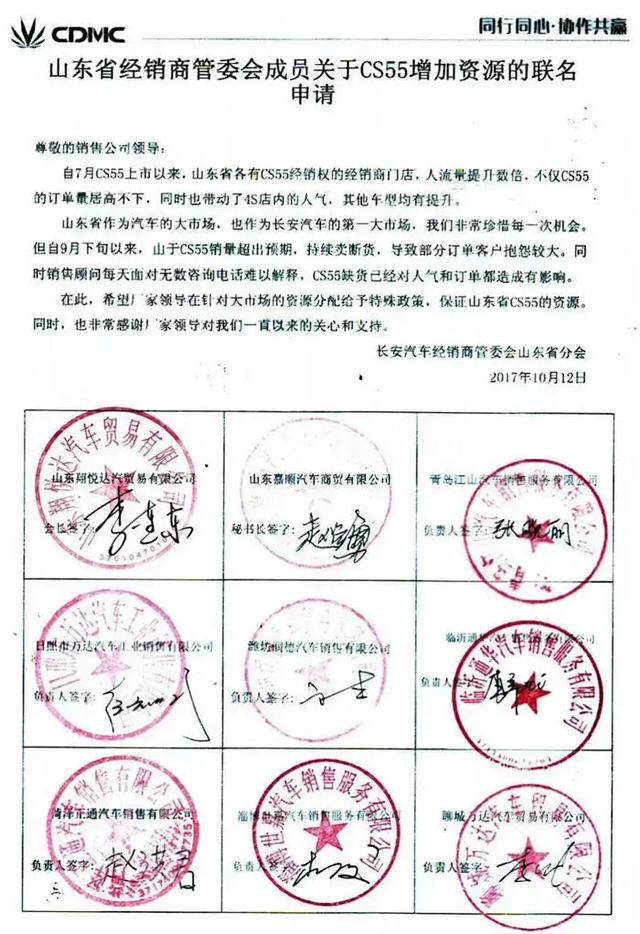 CDMC
同行同心·协作共赢
山东省经销商管委会成员关于CS55增加资源的联名
申请
尊敬的销售公司领导:
自7月CS55上市以来,山东省各有CS55经销权的经销商门店,人流量提升数倍,不仅CS55
的订单量居高不下,同时也带动了4S店内的人气,其他车型均有提升。
山东省作为汽车的大市场,也作为长安汽车的第一大市场,我们非常珍惜每一次机会。
但自9月下旬以来,由于CS55销量超出预期,持续卖断货,导致部分订单客户抱怨较大。同
时销售顾问每天面对无数咨询电话难以解释,CS55缺货已经对人气和订单都造成有影响。
在此,希望厂家领导在针对大市场的资源分配给予特殊政策,保证山东省CS55的资源。
同时,也非常感谢厂家领导对我们一直以来的关心和支持。
长安汽车经销商管委会山东省分会
2017年10月12日
山东翔悦达汽贸易有限公司
山东嘉顺汽车商贸有限公司
青岛江山汽车销售服务有限公司
会长签字:
秘书长签字:
负责人签字:
日照市万达汽车工业销售有限公司
潍坊润德汽车销售有限公司
临沂通华汽车销售服务有限公司
负责人签字:
负责人签字:
负责人签字:
菏泽正通汽车销售有限公司
淄博世嘉汽车销售服务有限公司
聊城万达汽车贸易有限公司
负责人签字:
负责人签字:
负责人签字: